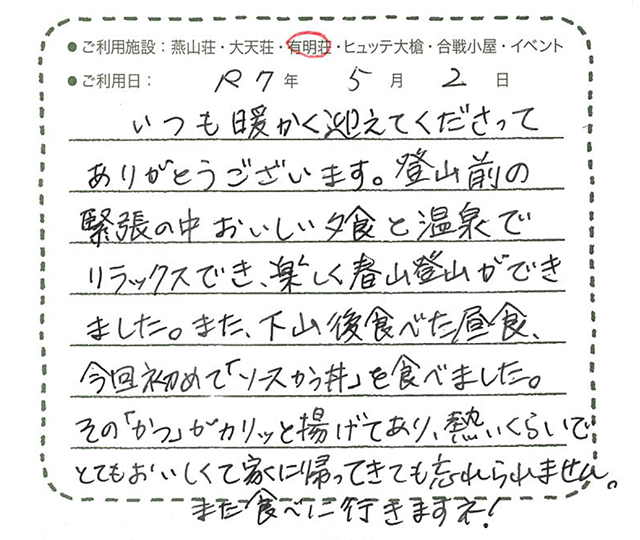 ●ご利用施設：燕山荘・大天荘・有明荘・ヒュッテ大槍・合戦小屋・イベント
●ご利用日： R7 年 5 月 2 日
いつも暖かく迎えてくださって
ありがとうございます。登山前の
緊張の中おいしい夕食と温泉で
リラックスでき、楽しく春山登山ができ
ました。また、下山後食べた昼食、
今回初めて「ソースかつ丼」を食べました。
その「かつ」がカリッと揚げてあり、熱いくらいで
とてもおいしくて家に帰ってきても忘れられません。
また食べに行きますネ！